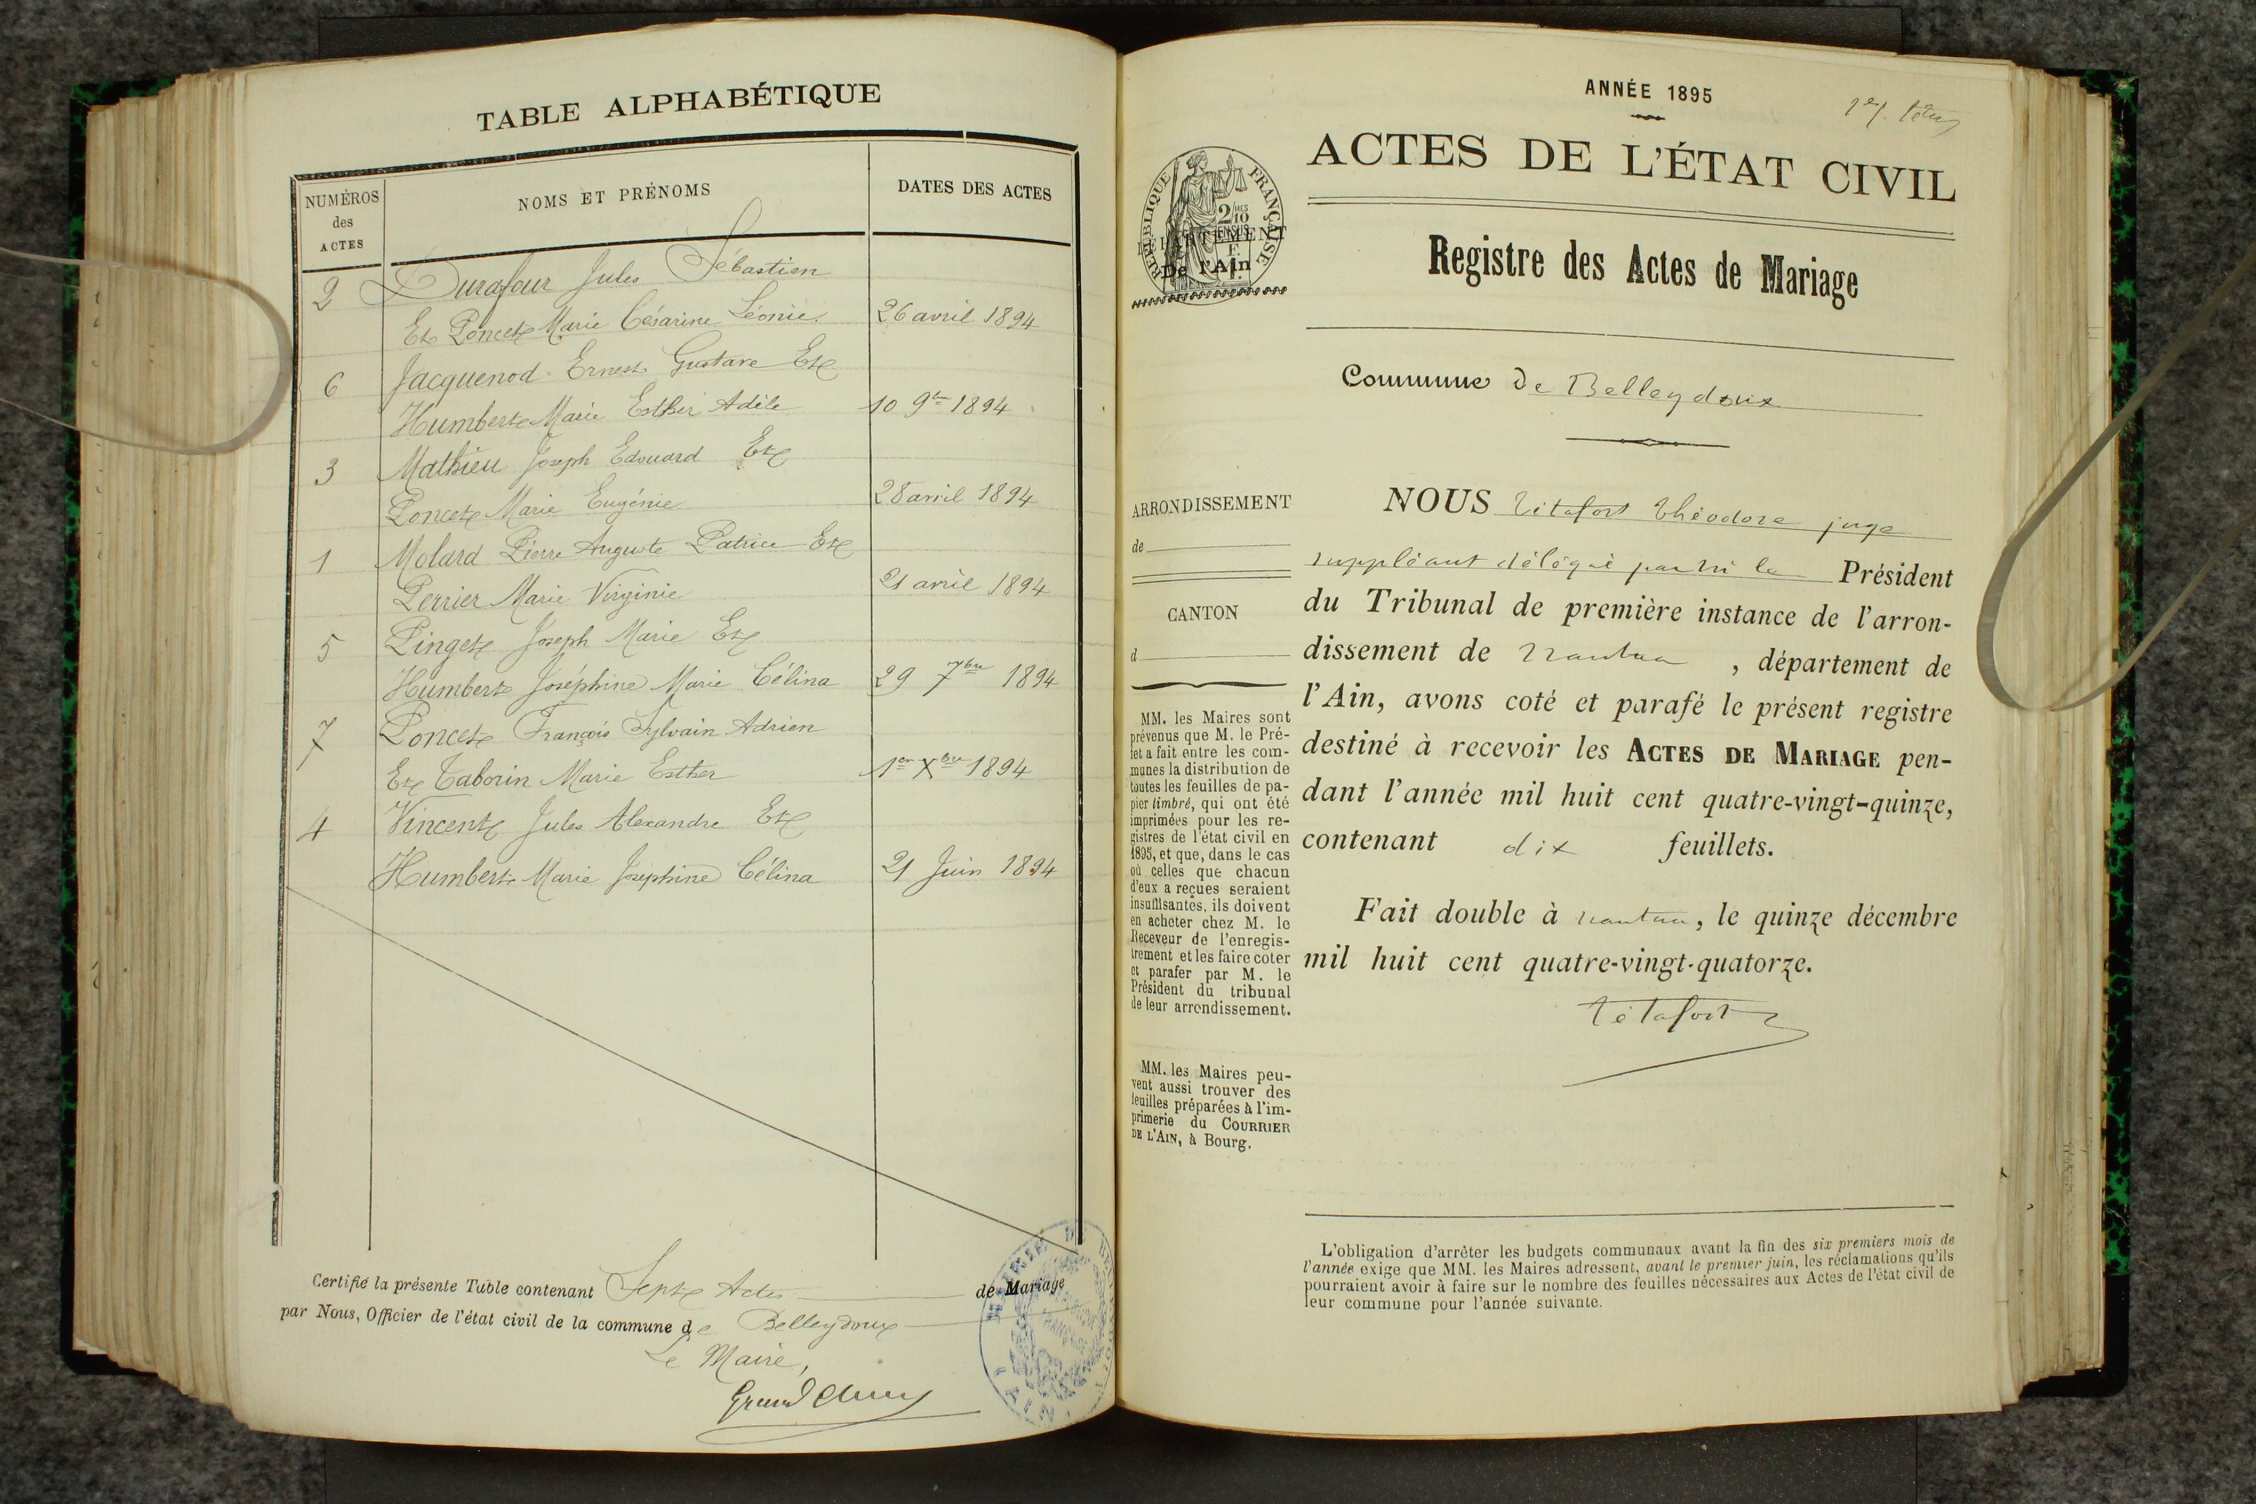 TABLE ALPHABÉTIQUE
NUMÉROS
des
ACTES
NOMS ET PRÉNOMS
DATES DES ACTES
2 Durafour Jules Sébastien
Et Poncet Marie Césarine Léonie 26 avril 1894
6 Jacquenod Ernest Gustave Et
Humbert Marie Esther Adèle 10 9bre 1894
3 Mathieu Joseph Edouard Et
Poncet Marie Eugénie 28 avril 1894
1 Molard Pierre Auguste Patrice Et
Perrier Marie Virginie 21 avril 1894
5 Pinget Joseph Marie Et
Humbert Joséphine Marie Célina 29 7bre 1894
7 Poncet François Sylvain Adrien
Et Taborin Marie Esther 1er Xbre 1894
4 Vincent Jules Alexandre Et
Humbert Marie Joséphine Célina 21 Juin 1894
Certifié la présente Table contenant Sept Actes de Mariage
par Nous, Officier de l'état civil de la commune de Belleydoux
Le Maire,
ANNÉE 1895
ACTES DE L'ÉTAT CIVIL
RÉPUBLIQUE FRANÇAISE
2/10
EN SUS
DÉPARTEMENT
De l'Ain
Registre des Actes de Mariage
Commune de Belleydoux
ARRONDISSEMENT
de
CANTON
d
MM. les Maires sont
prévenus que M. le Pré-
fet a fait entre les com-
munes la distribution de
toutes les feuilles de pa-
pier timbré, qui ont été
imprimées pour les re-
gistres de l'état civil en
1895, et que, dans le cas
où celles que chacun
d'eux a reçues seraient
insuffisantes, ils doivent
en acheter chez M. le
Receveur de l'enregis-
trement et les faire coter
et parafer par M. le
Président du tribunal
de leur arrondissement.
MM. les Maires peu-
vent aussi trouver des
feuilles préparées à l'im-
primerie du COURRIER
DE L'AIN, à Bourg.
NOUS Titafort Théodore juge
suppléant délégué par Mr le Président
du Tribunal de première instance de l'arron-
dissement de Nantua, département de
l'Ain, avons coté et parafé le présent registre
destiné à recevoir les ACTES DE MARIAGE pen-
dant l'année mil huit cent quatre-vingt-quinze,
contenant dix feuillets.
Fait double à Nantua, le quinze décembre
mil huit cent quatre-vingt-quatorze.
Titafort
L'obligation d'arrêter les budgets communaux avant la fin des six premiers mois de
l'année exige que MM. les Maires adressent, avant le premier juin, les réclamations qu'ils
pourraient avoir à faire sur le nombre des feuilles nécessaires aux Actes de l'état civil de
leur commune pour l'année suivante.